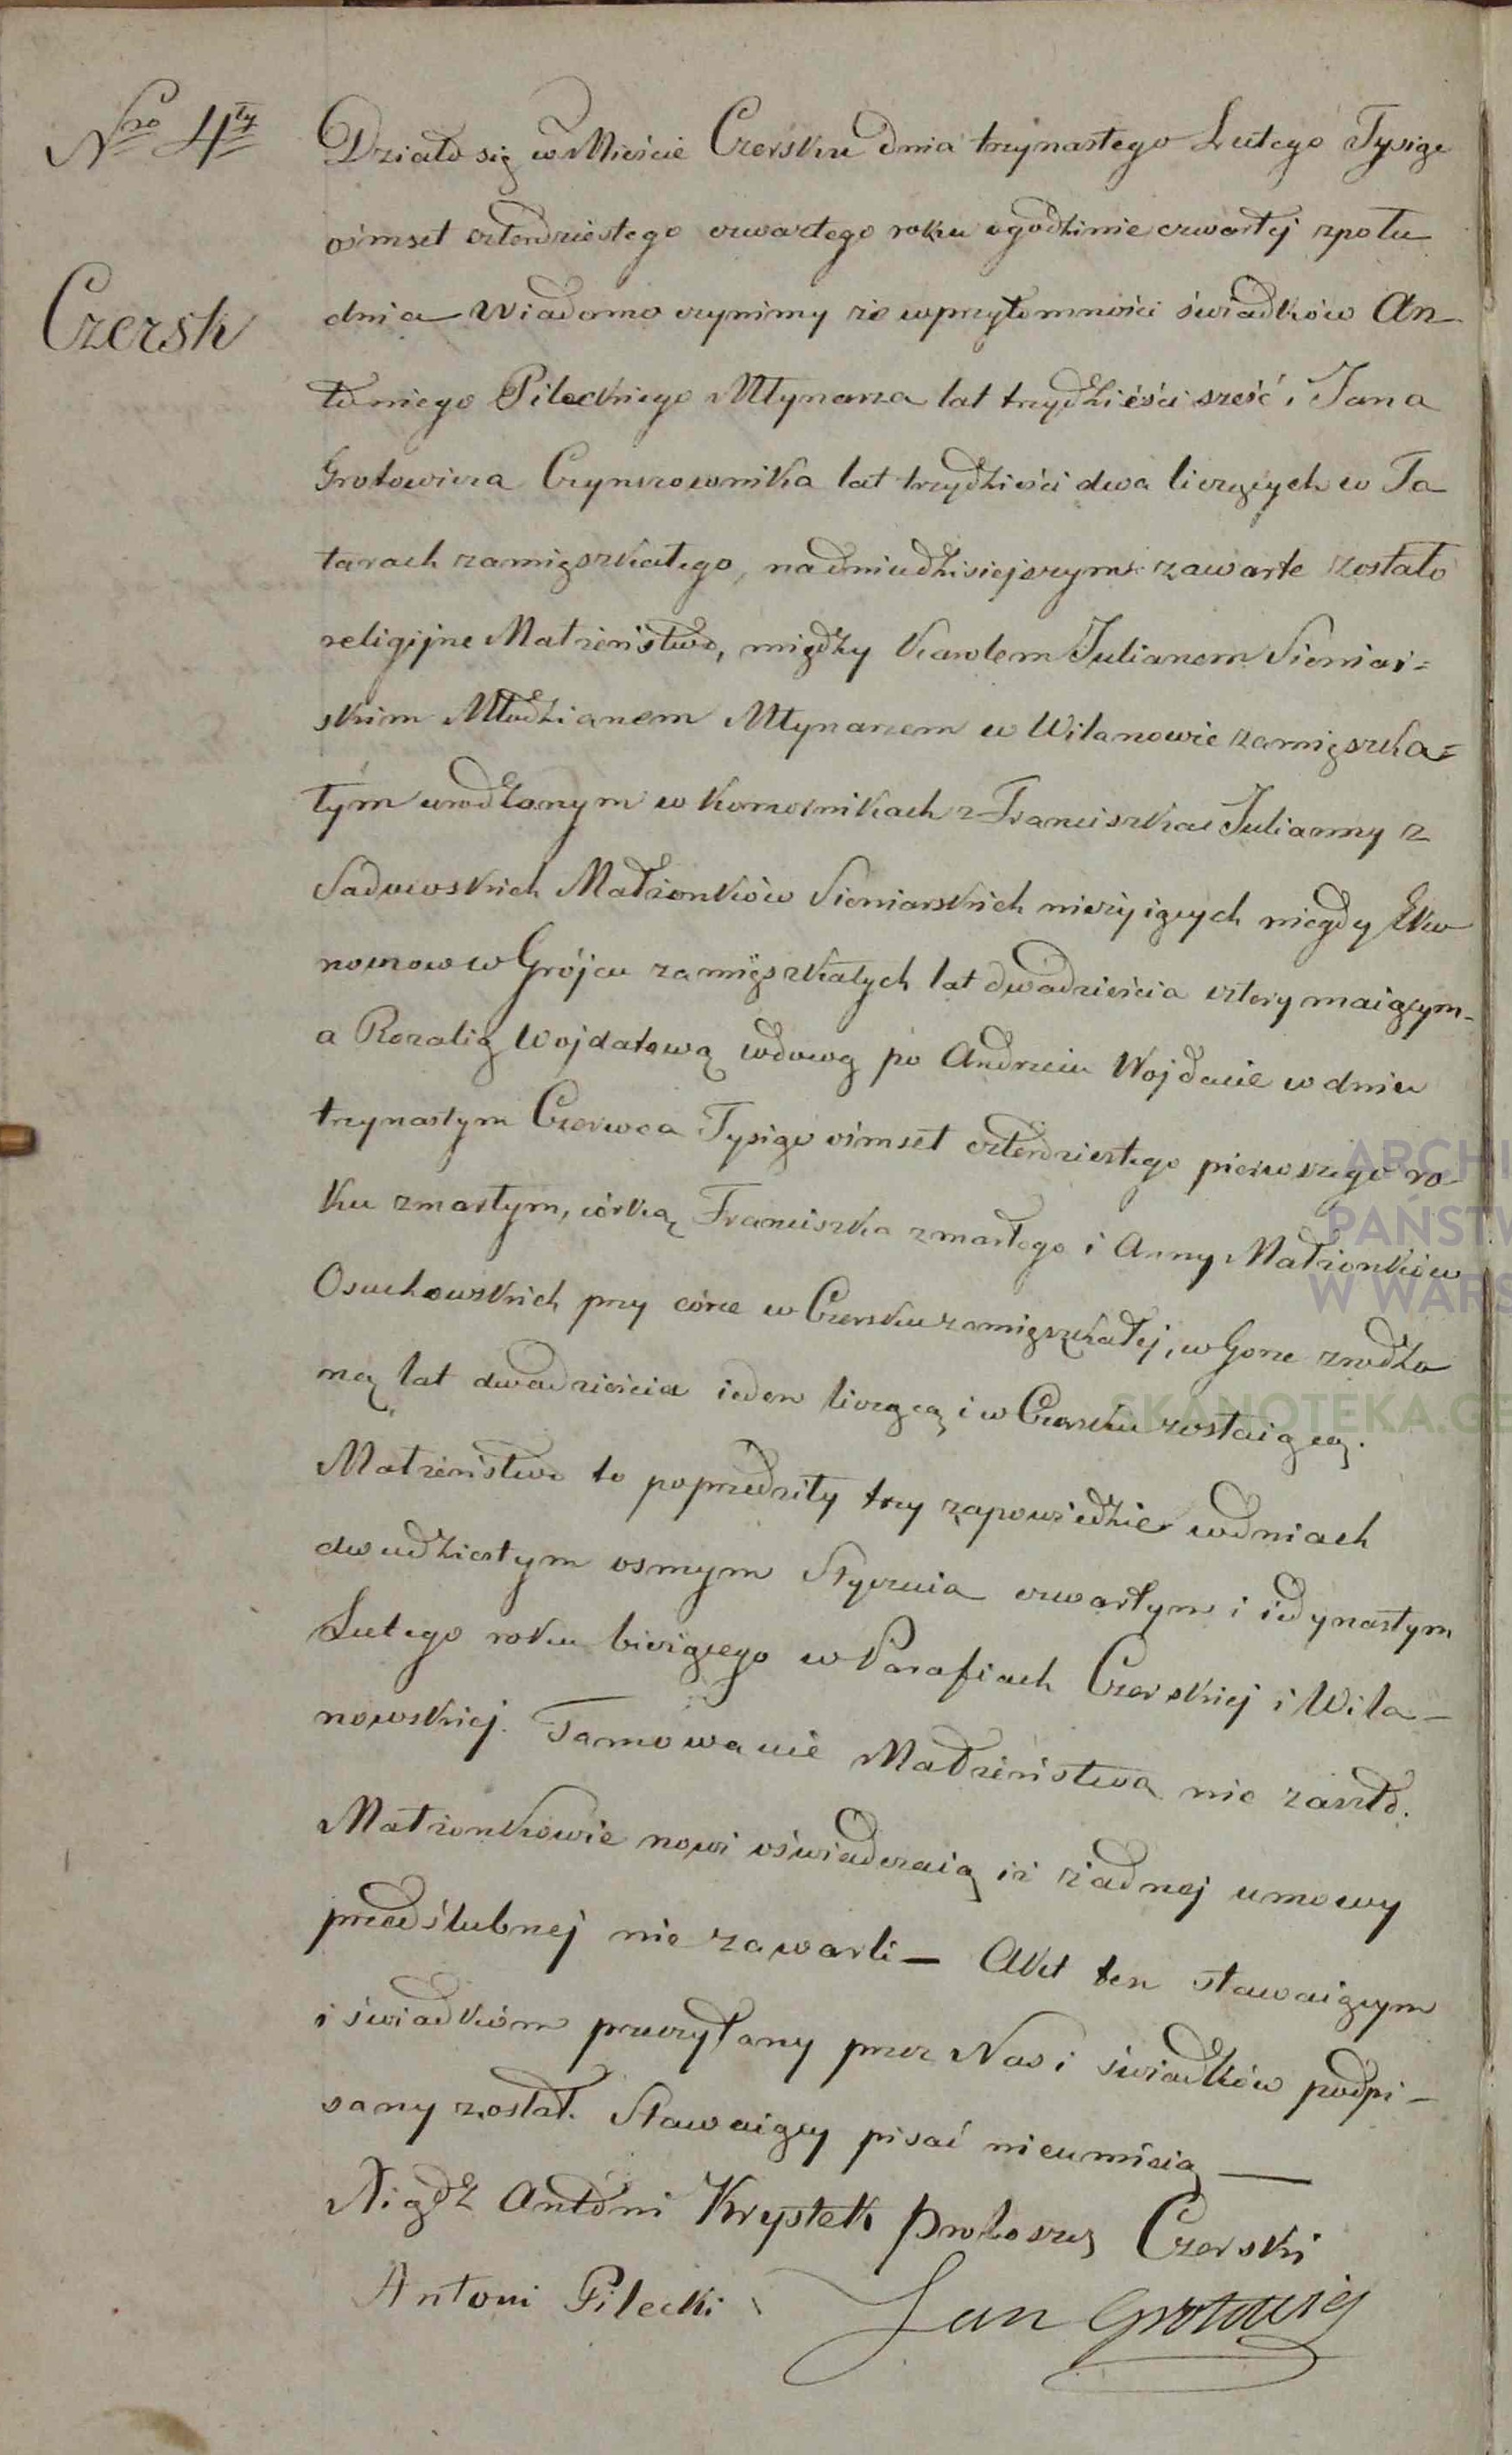 Nro 4ty
Czersk
Działo się w Mieście Czersku dnia trzynastego Lutego Tysiąc
ośmset czterdziestego czwartego roku o godzinie czwartej z połu
dnia Wiadomo czynimy że w przytomności świadków An
toniego Pileckiego Młynarza lat trzydzieści sześć i Jana
Grotowicza Czynszownika lat trzydzieści dwa liczących w Ta
tarach zamięszkałego, na dniu dzisiejszym zawarte zostało
religijne Małżeństwo, między Karolem Julianem Sieniar=
skim Młodzianem Młynarzem w Wilanowie zamięszka=
łym urodzonym w Komornikach z Franciszka i Julianny z
Sadowskich Małżonków Sieniarskich nieżyiących niegdy Eko
nomow w Grójcu zamięszkałych lat dwadzieścia cztery maiącym-
a Rozalią Wojdatową wdową po Andrzeiu Wojdacie w dniu
trzynastym Czerwca Tysiąc ośmset czterdziestego pierwszego ro-
ku zmarłym, córką Franciszka zmarłego i Anny Małżonków
Osuchowskich przy córce w Czersku zamięszkałej, w Gorze zrodzo
ną lat dwadzieścia ieden liczącą i w Czersku zostaiącą.
Małżeństwo to poprzedziły trzy zapowiedzie w dniach
dwudziestym osmym Stycznia czwartym i iedynastym
Lutego roku bieżącego w Parafiach Czerskiej i Wila-
nowskiej. Tamowanie Małżeństwa nie zaszło.
Małżonkowie nowi oświadczaią iż żadnej umowy
przedślubnej nie zawarli - Akt ten stawaiącym
i świadkóm przeczytany przez Nas i świadków podpi-
sany został. Stawaiący pisać nieumieią —
Xiądz Antoni Krystek Proboszcz Czerski
Antoni Pilecki Jan Grotowicz
ARCHI
PAŃSTW
W WARS
SKANOTEKA.GE